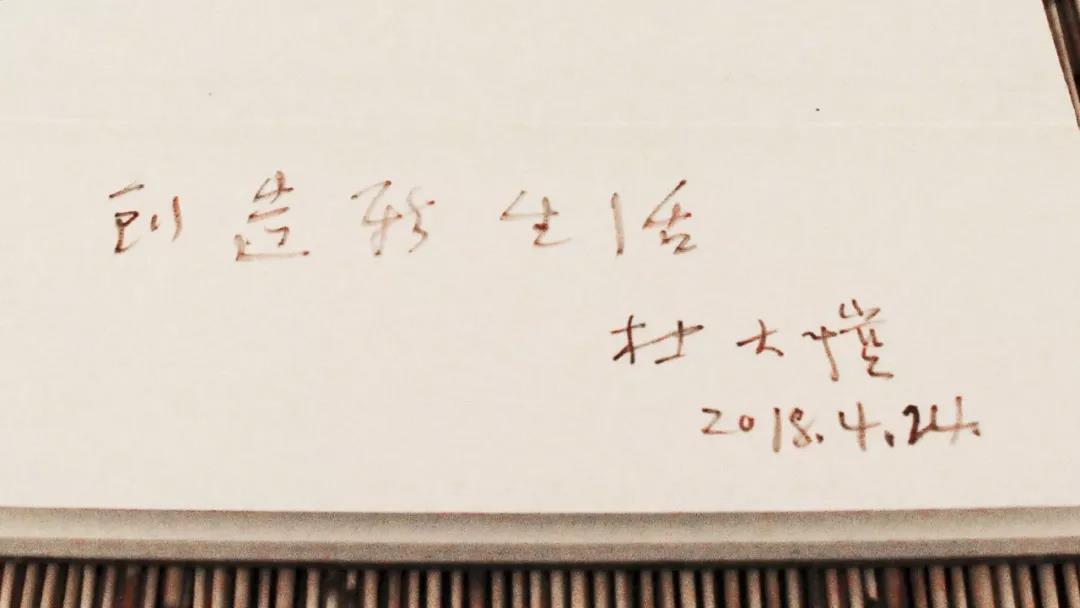 创造新生活
杜大恺
2018.4.24.